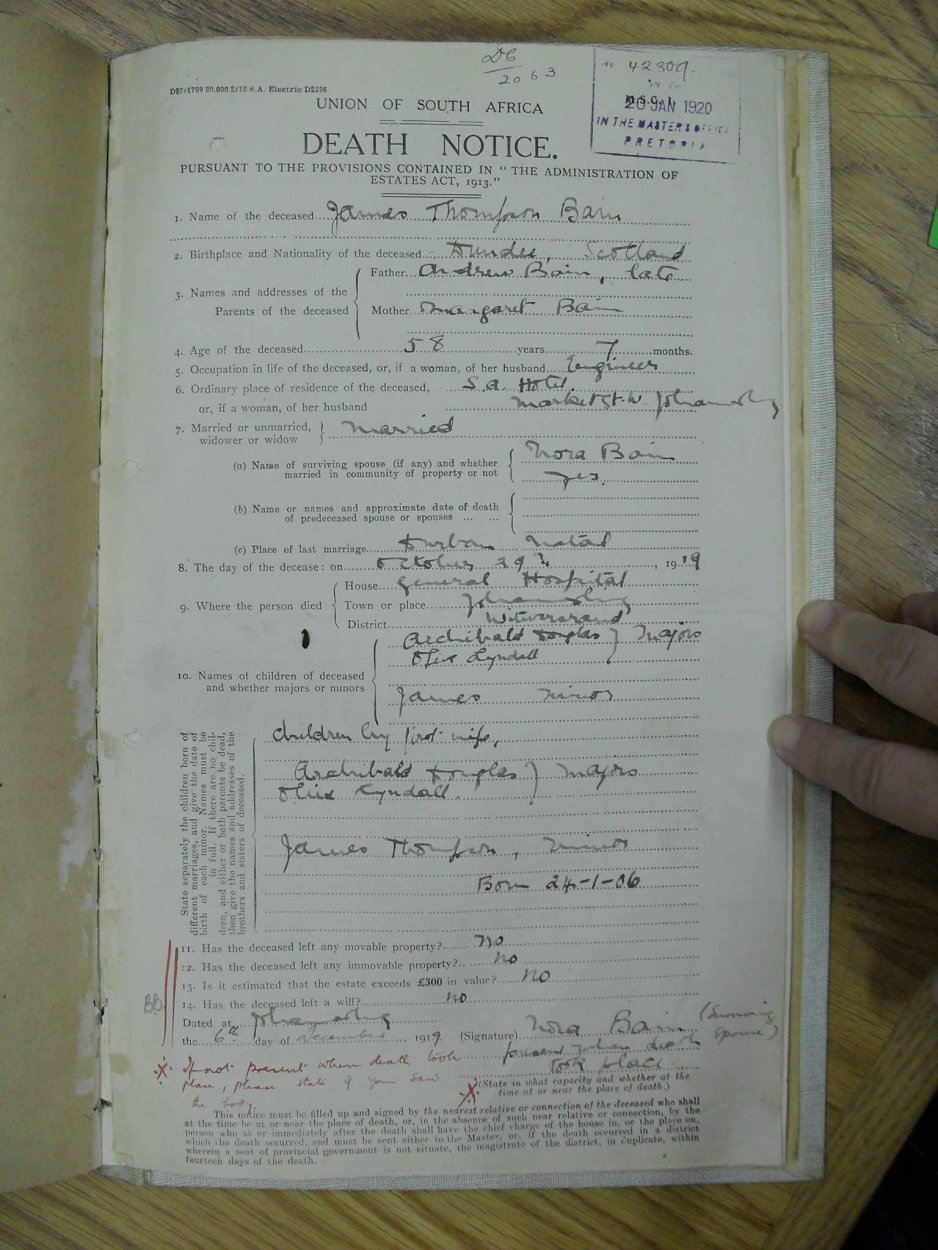 DG
2063
No. 42809.
20 JAN 1920
IN THE MASTER'S OFFICE
PRETORIA
20.000 2/18 S.A. Electric D2596
UNION OF SOUTH AFRICA
DEATH NOTICE.
PURSUANT TO THE PROVISIONS CONTAINED IN "THE ADMINISTRATION OF
ESTATES ACT, 1913."
1. Name of the deceased James Thompson Bain
2. Birthplace and Nationality of the deceased Dundee, Scotland
3. Names and addresses of the Parents of the deceased
Father Andrew Bain, late
Mother Margaret Bain
4. Age of the deceased 58 years 7 months.
5. Occupation in life of the deceased, or, if a woman, of her husband Engineer
6. Ordinary place of residence of the deceased, S.A. Hotel,
or, if a woman, of her husband Market St. W. Johannesburg
7. Married or unmarried, widower or widow } Married
(a) Name of surviving spouse (if any) and whether married in community of property or not { Nora Bain
yes.
(b) Name or names and approximate date of death
of predeceased spouse or spouses ... ...
(c) Place of last marriage Durban Natal
8. The day of the decease: on October 29th, 1919
9. Where the person died
House General Hospital
Town or place Johannesburg
District Witwatersrand
10. Names of children of deceased
and whether majors or minors
Archibald Douglas } Majors
Olive Lyndall
James Minor
State separately the children born of
different marriages, and give the date of
birth of each minor. Names must be
in full. If there are no chil-
dren, and either or both parents be dead,
then give the names and addresses of the
brothers and sisters of deceased.
Children by first wife,
Archibald Douglas } Majors
Olive Lyndall.
James Thompson, Minor
Born 24-1-06
11. Has the deceased left any movable property? No
12. Has the deceased left any immovable property? No
13. Is it estimated that the estate exceeds £300 in value? No
14. Has the deceased left a will? No
Dated at Johannesburg
the 6th day of December 1919
(Signature) Nora Bain (Surviving Spouse)
present when death
took place
(State in what capacity and whether at the
time at or near the place of death.)
X. If not present when death took
place, please state if you saw
the body.
This notice must be filled up and signed by the nearest relative or connection of the deceased who shall
at the time be at or near the place of death, or, in the absence of such near relative or connection, by the
person who at or immediately after the death shall have the chief charge of the house in, or the place on,
which the death occurred, and must be sent either to the Master, or, if the death occurred in a district
wherein a seat of provincial government is not situate, the magistrate of the district, in duplicate, within
fourteen days of the death.